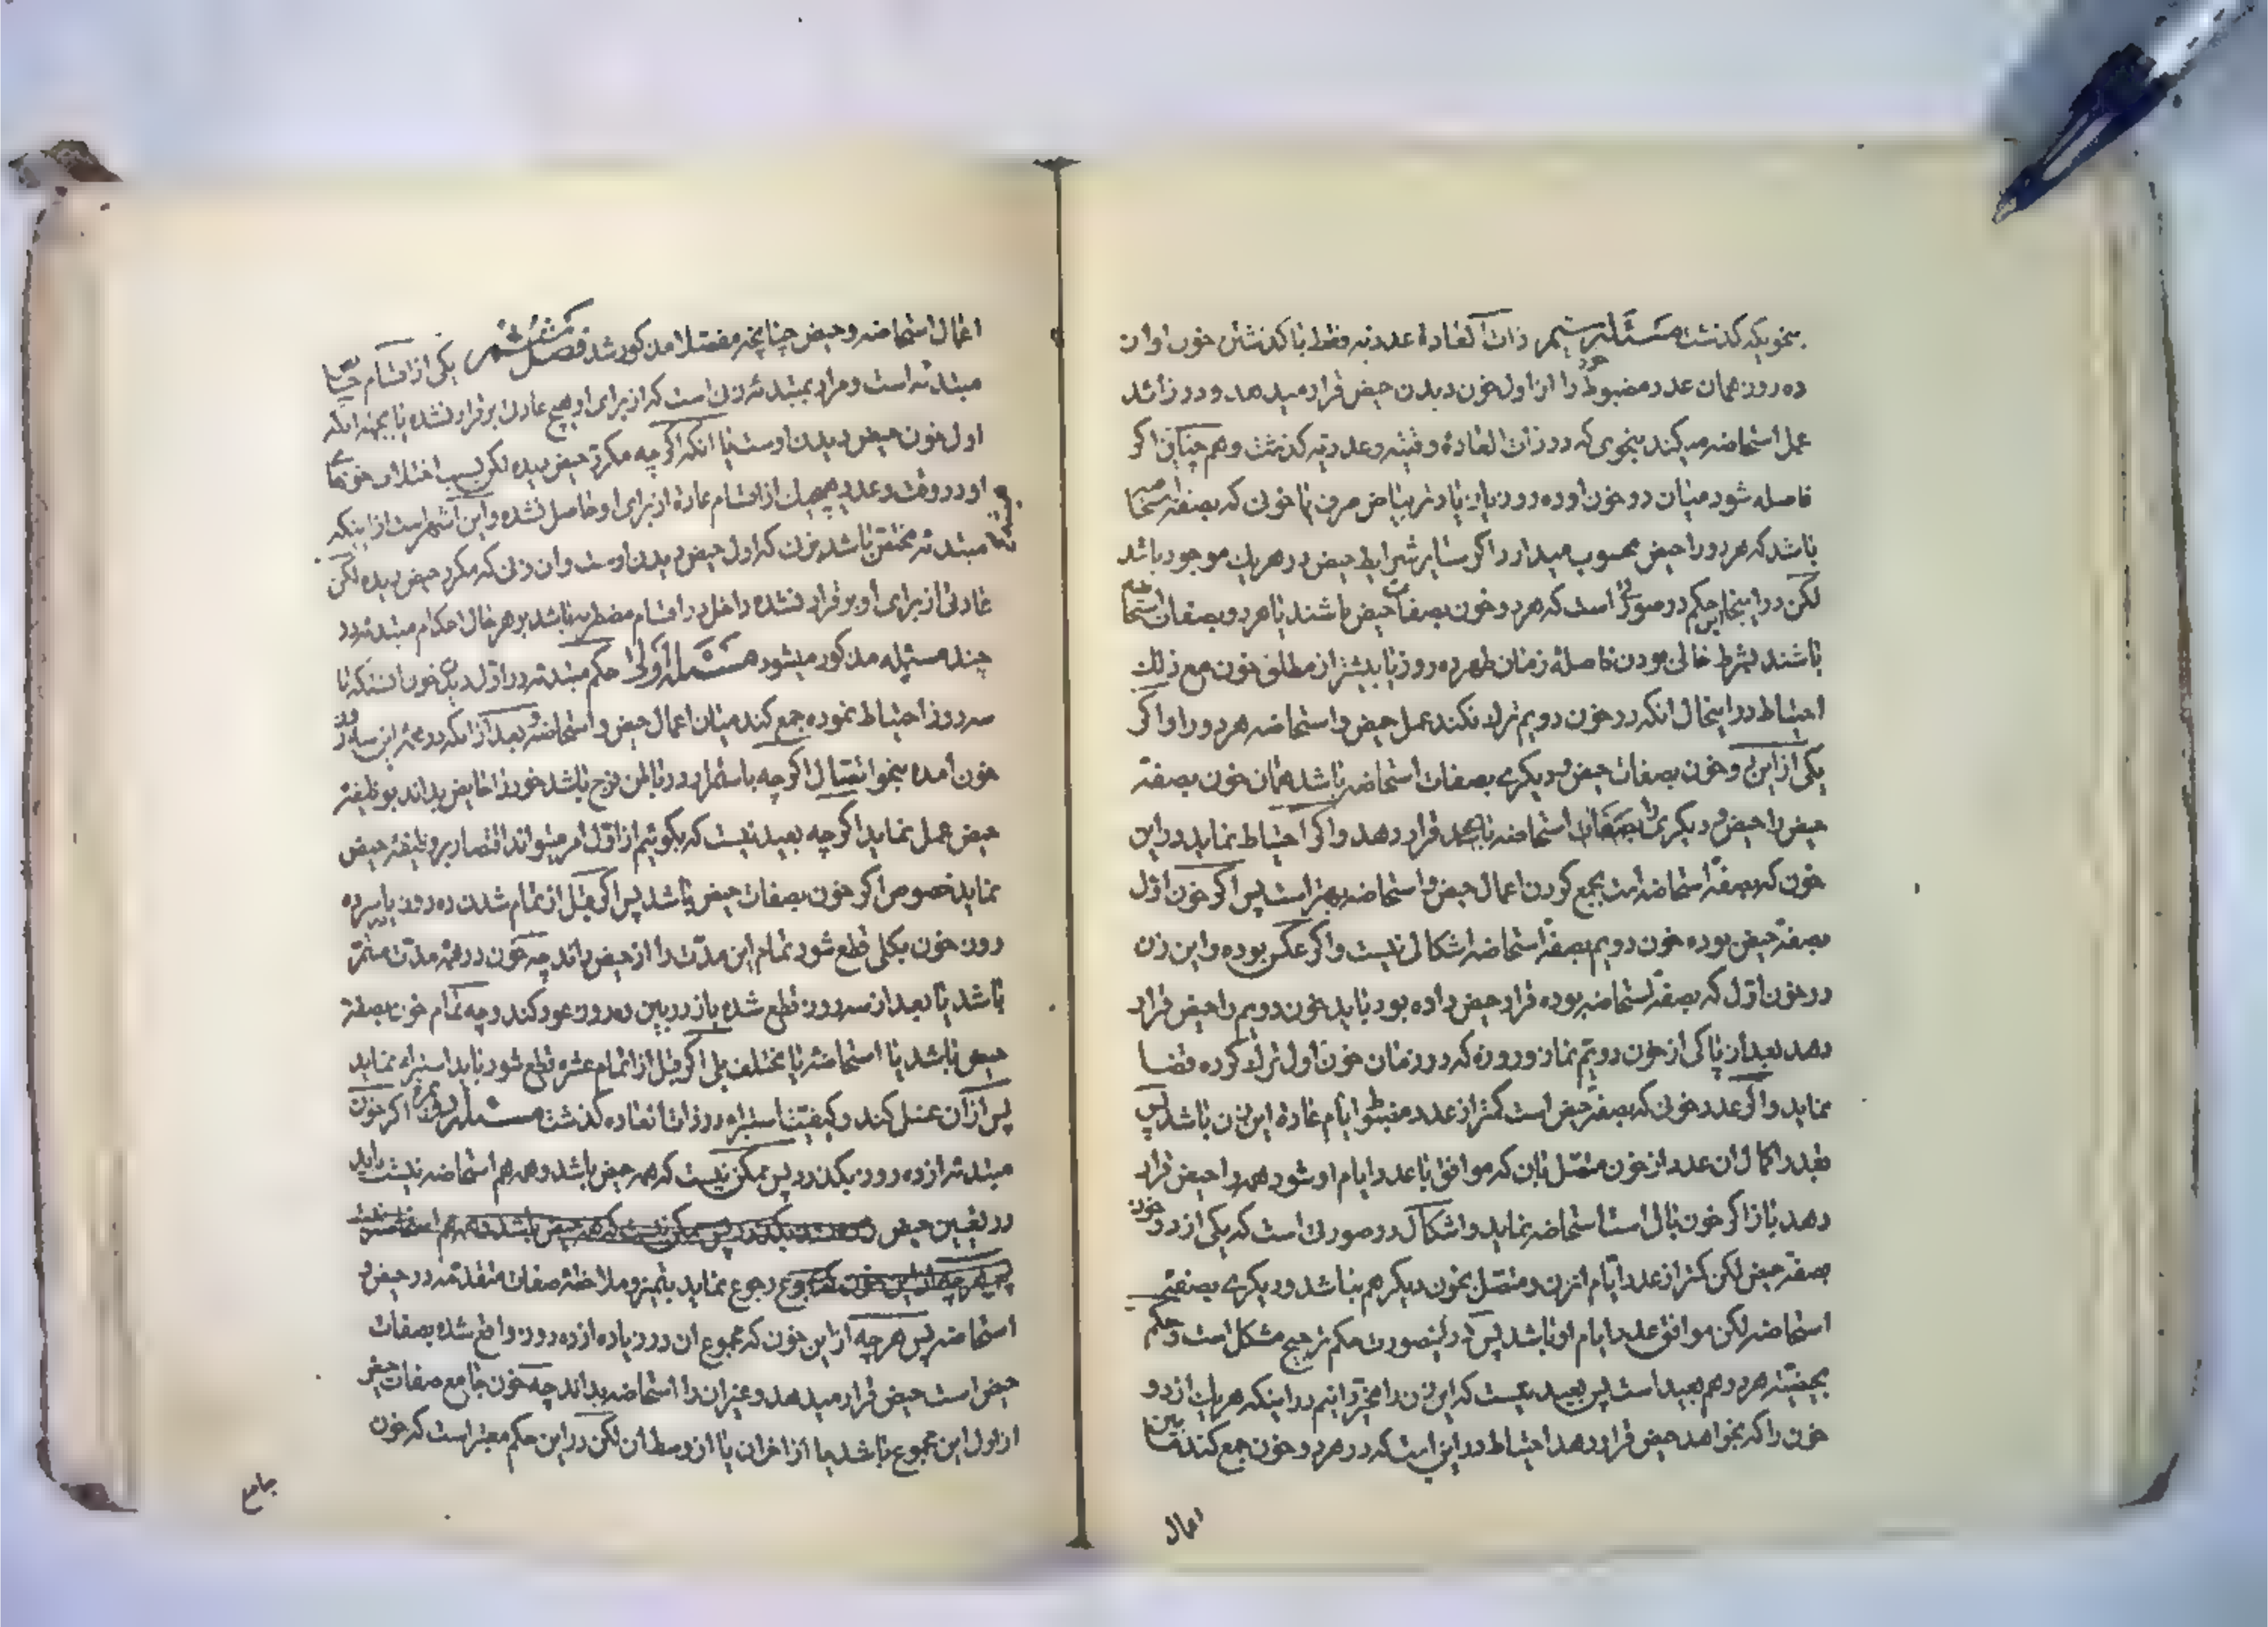 بنحویکه کذشت مسئله سیم ذات العادة عددیه فقط با کذشتن خون او از
ده روز همان عدد مضبوط خود را از اول خون دیدن حیض قرار میدهد و در زائد
عمل استحاضه میکند بنحوی که در ذات العادة وقتیه و عددیه کذشت و هم چنان اکر
فاصله شود میان دو خون او ده روز یا زیادتر ببیاض صرف یا خونی که بصفة استحاضه
باشد که هر دو را حیض محسوب میدارد اکر سایر شرایط حیض در هر یك موجود باشد
لکن در اینجا این حکم در صورتی است که هر دو خون بصفات حیض باشند یا هر دو بصفات استحاضه
باشند بشرط خالی بودن فاصلهٔ زمان طهر ده روز یا بیشتر از مطلق خون مع ذلك
احتیاط در اینحال انکه در خون دویم ترك نکند عمل حیض و استحاضه هر دو را و اکر
یکی از این دو خون بصفات حیض و دیکری بصفات استحاضه باشد همان خون بصفة
حیض را حیض و دیکری را استحاضه قرار دهد و اکر احتیاط نماید در این
خون که بصفة استحاضه است بجمع کردن اعمال حیض و استحاضه بهتر است پس اکر خون اول
بصفة حیض بوده خون دویم بصفة استحاضه اشکالی نیست و اکر عکس بوده و این زن
در خون اول که بصفة استحاضه بوده قرار حیض داده بود باید خون دویم را حیض قرار
دهد بعد از پاکی از خون دویم نماز و روزه که در زمان خون اول ترك کرده قضا
نماید و اکر عدد خونی که بصفة حیض است کمتر از عدد مضبوط ایام عادة این زن باشد پس
بقدر اکمال ان عدد از خون متصل بان که موافق با عدد ایام او شود همه را حیض قرار
دهد باز اکر خون باقی است استحاضه نماید و اشکال در صورتی است که یکی از دو خون
بصفة حیض لکن کمتر از عدد ایام انزن و متصل بخون دیکر هم نباشد و دیکری بصفة
استحاضه لکن موافق عدد ایام او باشد پس در اینصورت حکم ترجیح مشکل است و حکم
بحیضیة هر دو هم بعید است پس بعید نیست که این زن را مخیر دانیم در اینکه هر یك از دو
خون را که بخواهد حیض قرار دهد احتیاط در این است که در هر دو خون جمع کند مابین
اعمال
اعمال استحاضه و حیض چنانچه مفصلا مذکور شد فصل ششم یکی از اقسام
مبتدئه است و مراد بمبتدئه زنی است که از برای او هیچ عادتی برقرار نشده یا بجهة انکه
اول خون حیض دیدن اوست یا انکه اکر چه مکرر حیض دیده لکن بسبب اختلاف خونها
او در وقت و عدد هیچیك از اقسام عادة از برای او حاصل نشده و این اشهر است از اینکه
مبتدئه مختص باشد بزنی که اول حیض دیدن اوست و ان زنی که مکرر حیض دیده لکن
عادتی از برای او برقرار نشده داخل در اقسام مضطربه باشد بر هر حال احکام مبتدئه در
چند مسئله مذکور میشود مسئله اولی حکم مبتدئه در اول دیدن خون انستکه تا
سه روز احتیاط نموده جمع کند میان اعمال حیض و استحاضه و بعد از انکه در همه این سه روز
خون آمده بنحو اتصال اکر چه باستمرار در باطن فرج باشد خود را حایض بداند بوظیفه
حیض عمل نماید اکر چه بعید نیست که بکوئیم از اول امر میتواند اقتصار بر وظیفه حیض
نماید خصوص اکر خون بصفات حیض باشد پس اکر قبل از تمام شدن ده روز یا سر ده
روز خون بکلی قطع شود تمام این مدت را از حیض داند چه خون در همه مدت مستمر
باشد یا بعد از سه روز قطع شده باز در بین ده روز عود کند و چه تمام خون بصفة
حیض باشد یا استحاضه یا مختلف بلی اکر قبل از اتمام عشره قطع شود باید استبراء نماید
پس از آن غسل کند و کیفیت استبراء در ذات العاده کذشت مسئله دویم اکر خون
مبتدئه از ده روز بکذرد پس ممکن نیست که همه حیض باشد و همه هم استحاضه نیست باید
در تعیین حیض
رجوع نماید بتمیز و ملاحظه صفات متقدمه در حیض و
استحاضه پس هر چه از این خون که مجموع ان در زیاده از ده روز واقع شده بصفات
حیض است حیض قرار میدهد و غیر ان را استحاضه بداند چه خون جامع صفات حیض
از اول این مجموع باشد یا از اخر ان یا از وسط ان لکن در این حکم معتبر است که خون
جامع